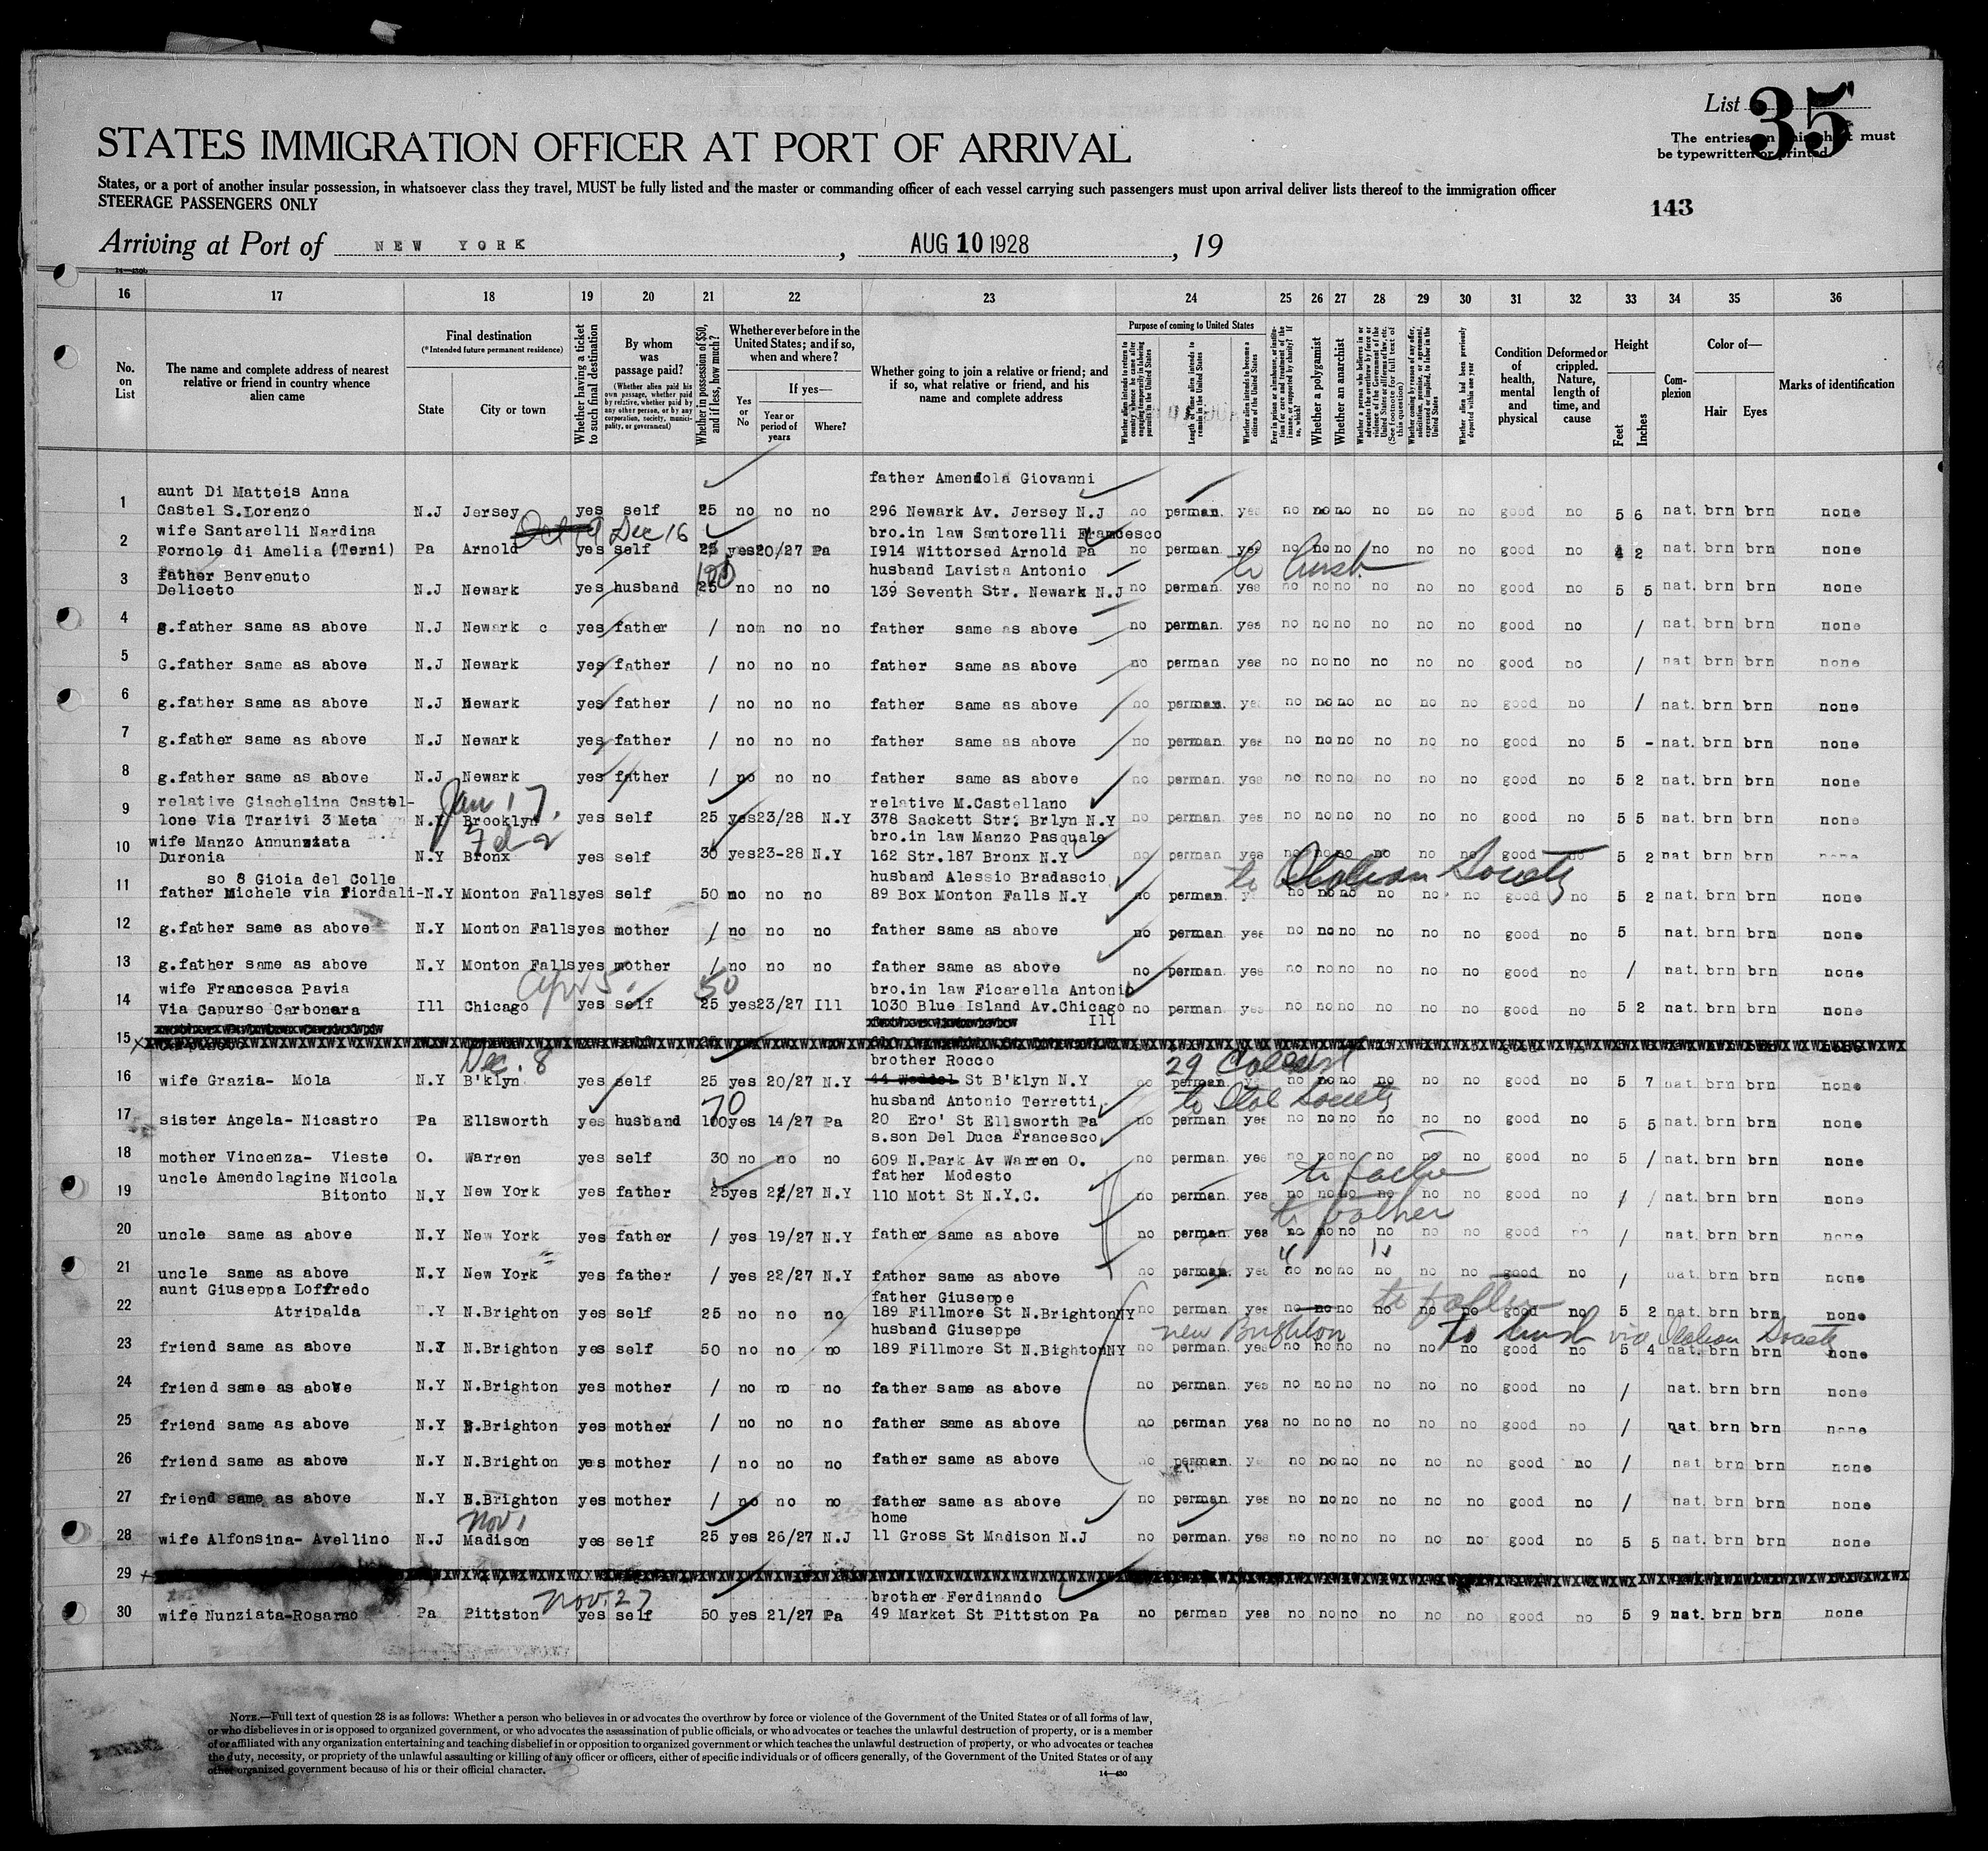 List 35
The entries on this sheet must
be typewritten or printed
STATES IMMIGRATION OFFICER AT PORT OF ARRIVAL
States, or a port of another insular possession, in whatsoever class they travel, MUST be fully listed and the master or commanding officer of each vessel carrying such passengers must upon arrival deliver lists thereof to the immigration officer
STEERAGE PASSENGERS ONLY
143
Arriving at Port of NEW YORK, AUG 10 1928, 19
16 17 18 19 20 21 22 23 24 25 26 27 28 29 30 31 32 33 34 35 36
No. on List
The name and complete address of nearest relative or friend in country whence alien came
Final destination
(*Intended future permanent residence)
State
City or town
Whether having a ticket to such final destination
By whom was passage paid?
(Whether alien paid his own passage, whether paid by relative, whether paid by any other person, or by any corporation, society, municipality, or government)
Whether in possession of $50, and if less, how much?
Whether ever before in the United States; and if so, when and where?
Yes or No
If yes—
Year or period of years
Where?
Whether going to join a relative or friend; and if so, what relative or friend, and his name and complete address
Purpose of coming to United States
Whether alien intends to return to country whence he came after engaging temporarily in laboring pursuits in the United States
Length of time alien intends to remain in the United States
Whether alien intends to become a citizen of the United States
Ever in prison or almshouse, or institution for care and treatment of the insane, or supported by charity? If so, which?
Whether a polygamist
Whether an anarchist
Whether a person who believes in or advocates the overthrow by force or violence of the Government of the United States or all forms of law, etc. (See footnote for full text of this question)
Whether coming by reason of any offer, solicitation, promise, or agreement, expressed or implied, to labor in the United States
Whether alien had been previously deported within one year
Condition of health, mental and physical
Deformed or crippled. Nature, length of time, and cause
Height
Feet
Inches
Complexion
Color of—
Hair
Eyes
Marks of identification
father Amendola Giovanni
aunt Di Matteis Anna
1 Castel S.Lorenzo N.J Jersey yes self 25 no no no 296 Newark Av. Jersey N.J no perman. yes no no no no no no good no 5 6 nat. brn brn none
Dec 16
wife Santarelli Nardina bro.in law Santorelli Francesco
2 Fornole di Amelia (Terni) Pa Arnold yes self 25 yes 20/27 Pa 1914 Wittorsed Arnold Pa no perman yes no no no no no no good no 4 2 nat. brn brn none
100 to husb.
father Benvenuto husband Lavista Antonio
3 Deliceto N.J Newark yes husband 25 no no no 139 Seventh Str. Newark N.J no perman yes no no no no no no good no 5 5 nat. brn brn none
4 g.father same as above N.J Newark c yes father / no no no father same as above no perman. yes no no no no no no good no / nat. brn brn none
5 G.father same as above N.J Newark yes father / no no no father same as above no perman yes no no no no no no good no / nat. brn brn none
6 g.father same as above N.J Newark yes father / no no no father same as above no perman. yes no no no no no no good no / nat. brn brn none
7 g.father same as above N.J Newark yes father / no no no father same as above no perman yes no no no no no no good no 5 - nat. brn brn none
8 g.father same as above N.J Newark yes father / no no no father same as above no perman. yes no no no no no no good no 5 2 nat. brn brn none
Jan 17.
relative Giachelina Castel- relative M.Castellano
9 lone Via Trarivi 3 Meta N.Y Brooklyn yes self 25 yes 23/28 N.Y 378 Sackett Str. Brlyn N.Y no perman yes no no no no no no good no 5 5 nat. brn brn none
Feb 2
wife Manzo Annunziata bro.in law Manzo Pasquale
10 Duronia N.Y Bronx yes self 30 yes 23-28 N.Y 162 Str.187 Bronx N.Y no perman yes no no no no no no good no 5 2 nat brn brn none
to Italian Society
so 8 Gioia del Colle husband Alessio Bradascio
11 father Michele via Fiordali- N.Y Monton Falls yes self 50 no no no 89 Box Monton Falls N.Y no perman. no no no no no no good no 5 2 nat. brn brn none
12 g.father same as above N.Y Monton Falls yes mother / no no no father same as above no perman. yes no no no no no no good no 5 nat. brn brn none
13 g.father same as above N.Y Monton Falls yes mother / no no no father same as above no perman. yes no no no no no no good no / nat. brn brn none
Apr 5. 50
wife Francesca Pavia bro.in law Ficarella Antonio
14 Via Capurso Carbonara Ill Chicago yes self 25 yes 23/27 Ill 1030 Blue Island Av.Chicago no perman. yes no no no no no no good no 5 2 nat. brn brn none
Ill
15
Dec. 8 brother Rocco 29
16 wife Grazia- Mola N.Y B'klyn yes self 25 yes 20/27 N.Y St B'klyn N.Y no perman. no no no no no no good no 5 7 nat. brn brn none
70 husband Antonio Terretti to Ital Society
17 sister Angela- Nicastro Pa Ellsworth yes husband 100 yes 14/27 Pa 20 Ero' St Ellsworth Pa no perman. yes no no no no no no good no 5 5 nat. brn brn none
s.son Del Duca Francesco
18 mother Vincenza- Vieste O. Warren yes self 30 no no no 609 N.Park Av Warren O. no perman. yes no no no no no no good no 5 / nat. brn brn none
uncle Amendolagine Nicola father Modesto to father
19 Bitonto N.Y New York yes father 25 yes 22/27 N.Y 110 Mott St N.Y.C. no perman. yes no no no no no no good no / / nat. brn brn none
to father
20 uncle same as above N.Y New York yes father / yes 19/27 N.Y father same as above no perman. yes no no no no no no good no / nat. brn brn none
21 uncle same as above N.Y New York yes father / yes 22/27 N.Y father same as above no perman. yes no no no no no no good no / nat. brn brn none
aunt Giuseppa Loffredo father Giuseppe to father
22 Atripalda N.Y N.Brighton yes self 25 no no no 189 Fillmore St N.Brighton NY no perman. yes no no no no no no good no 5 2 nat. brn brn none
husband Giuseppe new Brighton to husb via Italian Society
23 friend same as above N.Y N.Brighton yes self 50 no no no 189 Fillmore St N.Bighton NY no perman. yes no no no no no no good no 5 4 nat. brn brn none
24 friend same as above N.Y N.Brighton yes mother / no no no father same as above no perman. yes no no no no no no good no / nat. brn brn none
25 friend same as above N.Y N.Brighton yes mother / no no no father same as above no perman. yes no no no no no no good no / nat brn brn none
26 friend same as above N.Y N.Brighton yes mother / no no no father same as above no perman. no no no no no no good no / nat brn brn none
27 friend same as above N.Y N.Brighton yes mother / no no no father same as above no perman yes no no no no no no good no / nat. brn brn none
Nov 1 home
28 wife Alfonsina- Avellino N.J Madison yes self 25 yes 26/27 N.J 11 Gross St Madison N.J no perman. yes no no no no no no good no 5 5 nat. brn brn none
29
Nov. 27 brother Ferdinando
30 wife Nunziata-Rosarno Pa Pittston yes self 50 yes 21/27 Pa 49 Market St Pittston Pa no perman yes no no no no no no good no 5 9 nat. brn brn none
NOTE.—Full text of question 28 is as follows: Whether a person who believes in or advocates the overthrow by force or violence of the Government of the United States or of all forms of law,
or who disbelieves in or is opposed to organized government, or who advocates the assassination of public officials, or who advocates or teaches the unlawful destruction of property, or is a member
of or affiliated with any organization entertaining and teaching disbelief in or opposition to organized government or which teaches the unlawful destruction of property, or who advocates or teaches
the duty, necessity, or propriety of the unlawful assaulting or killing of any officer or officers, either of specific individuals or of officers generally, of the Government of the United States or of any
other organized government because of his or their official character.
14—430